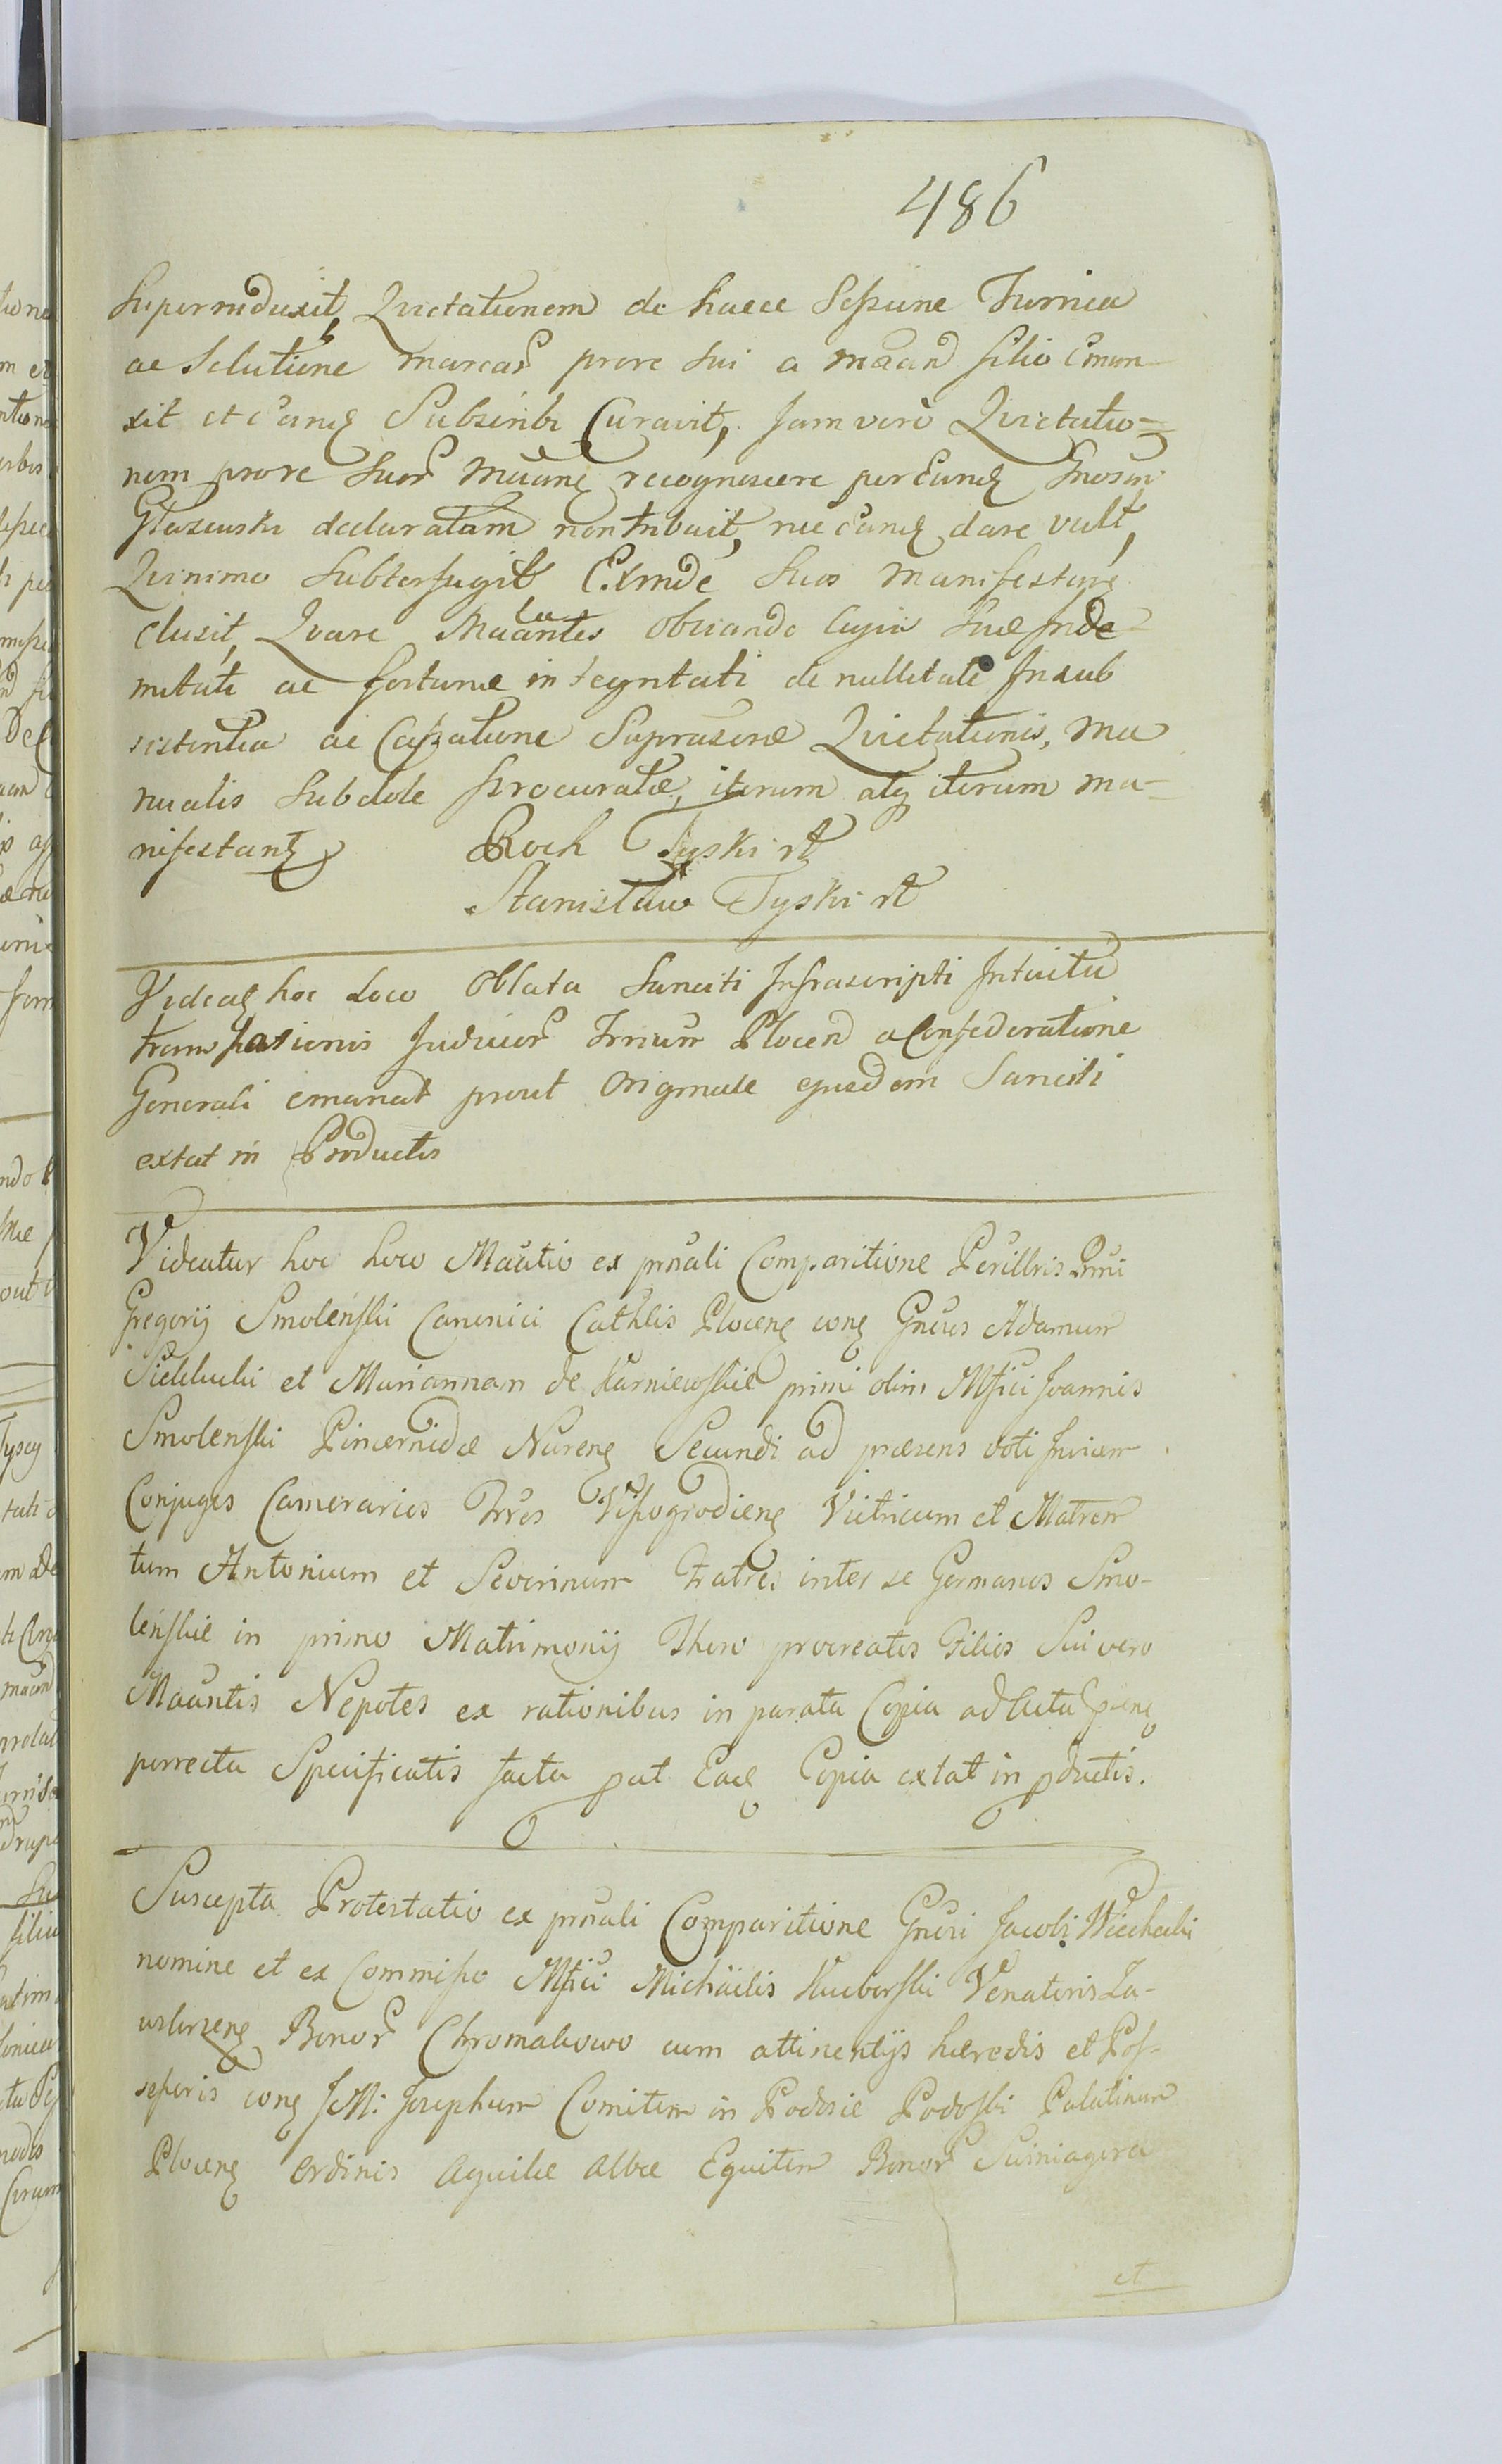 486
Superinduxit, Quietationem de haece Sessione Furnica
ac Solutione marcar prore sui a maand filio Emun
xit et eand Subscribi Curavit, Jam vero Quietatio=
nem prore suor Muang recognoscere per Eund Gnosum
declaratam non tribuit, nec eand dare vult,
Quinimo Subterfugit Exinde Suos manifestare
clusit, Quare Maantes obviando Suæ Inde
mitati ac fortunæ integritati de nullitate Insub
sistentia ac Cassatione Suprascræ Quietationis, ma
nualis Subdole procuratæ, iterum atq iterum ma=
nifestant Roch Tyski rt
Stanisław Tyski rt
Videat hoc Loco Oblata Sanciti Infrascripti Intuitu
Judicior Trrium Plocen a Confederatione
Generali emanat prout Originale ejusdem Sanciti
extat in Productis
Videatur hoc loco Maatio ex pnali Comparitione Perillris Rmi
Gregorij Smolenski Canonici Cathlis Plocens cong Gnous Adamum
et Mariannam de Karniewskie primi olim Mfici Joannis
Smolenski Pincernidæ Nurens Secundi ad præsens voti Invicem
Conjuges Camerarios Trres Wissogrodiens Vitricum et Matrem
tum Antonium et Severinum Fratres inter se Germanos Smo-
lenskie in primo Matrimonij Thoro procreatos Filios Sui vero
Maantis Nepotes ex rationibus in parata Copia ad Acta
porrecta Specificatis facta put Ead Copia extat in pductis.
Suscepta Protestatio ex pnali Comparitione Gnosi Jacobi
nomine et ex Commisso Mfici Michaelis Venatoris Za-
Bonor Chromakowo cum attinentijs hæredis et Pos-
sessoris cong JM: Josephum Comitem in Podosie Podoski Palatinum
Plocens Ordinis Aquilæ Albæ Equitem Bonor
et